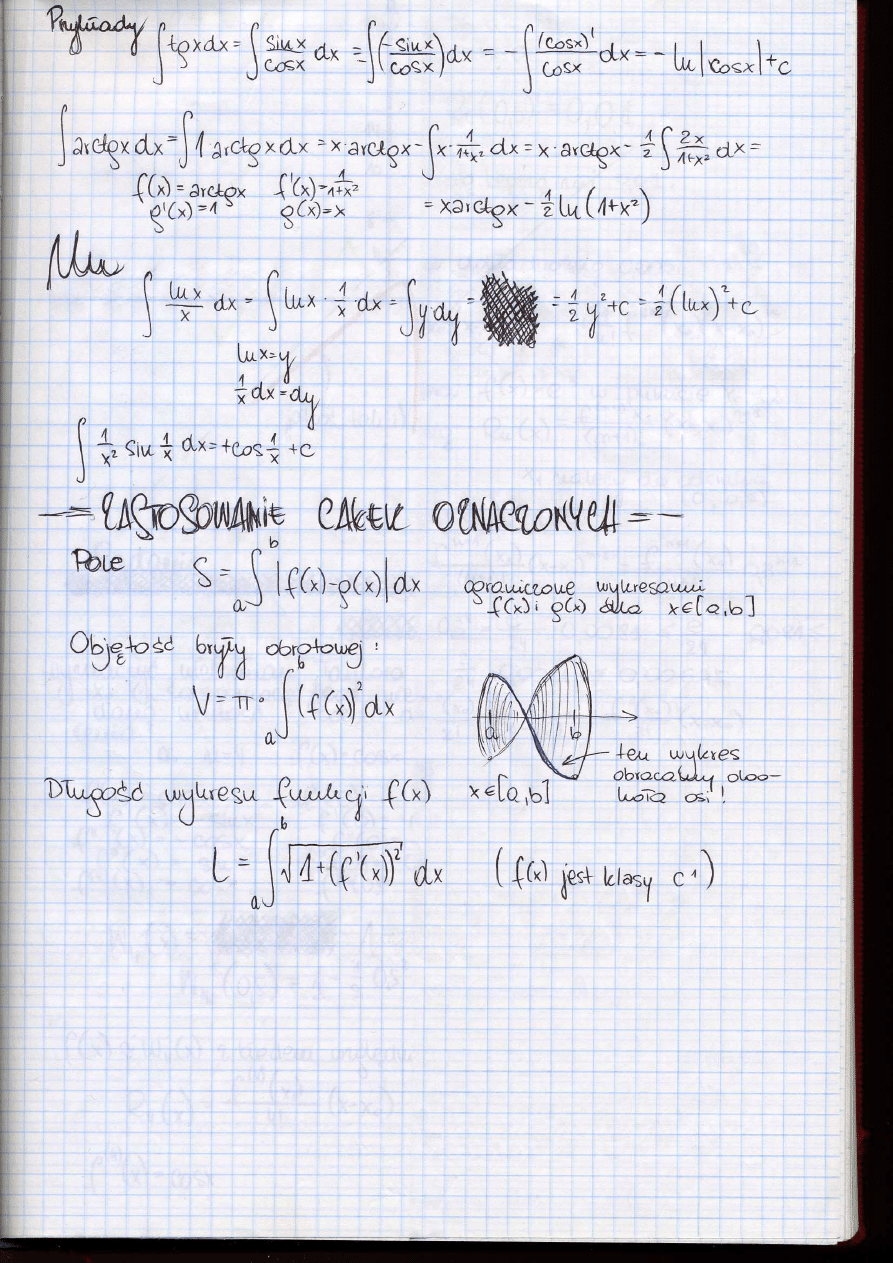 Przykłady ∫tgxdx = ∫ sinx/cosx dx = -∫(-sinx/cosx)dx = -∫ (cosx)'/cosx dx = - ln|cosx|+c
∫arctgx dx = ∫1 arctgx dx = x·arctgx - ∫x·1/1+x² dx = x·arctgx - 1/2 ∫ 2x/1+x² dx =
f(x)=arctgx f'(x)=1/1+x²
g'(x)=1 g(x)=x
= xarctgx - 1/2 ln(1+x²)
∫ lnx/x dx = ∫ lnx · 1/x · dx = ∫y·dy = = 1/2 y²+c = 1/2 (lnx)²+c
lnx=y
1/x dx=dy
∫ 1/x² sin 1/x dx = +cos 1/x +c
-= ZASTOSOWANIE CAŁEK OZNACZONYCH =-
Pole S = ∫ₐᵇ |f(x)-g(x)|dx ograniczone wykresami
f(x) i g(x) dla x∈[a,b]
Objętość bryły obrotowej:
V = π · ∫ₐᵇ (f(x))² dx
a b
ten wykres
obracamy doo-
koła osi!
Długość wykresu funkcji f(x) x∈[a,b]
L = ∫ₐᵇ √1+(f'(x))² dx (f(x) jest klasy c¹)